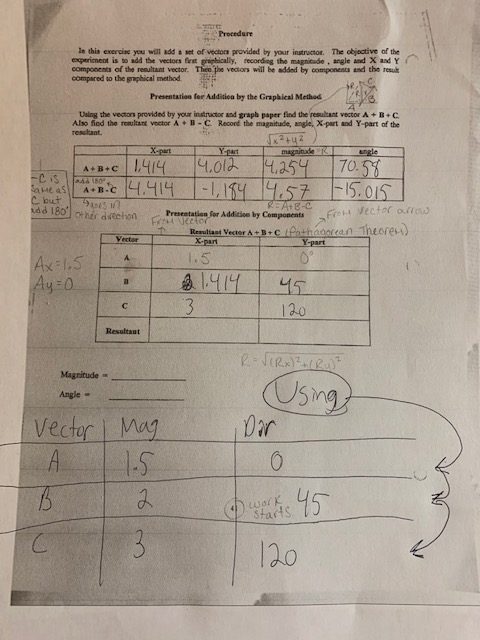 Procedure
In this exercise you will add a set of vectors provided by your instructor. The objective of the
experiment is to add the vectors first graphically, recording the magnitude, angle and X and Y
components of the resultant vector. Then the vectors will be added by components and the result
compared to the graphical method.
Presentation for Addition by the Graphical Method
Using the vectors provided by your instructor and graph paper find the resultant vector A + B + C.
Also find the resultant vector A + B - C. Record the magnitude, angle, X-part and Y-part of the
resultant.
√x²+y²
X-part Y-part magnitude =R angle
A + B + C 1.414 4.012 4.254 70.58
add 180°
A + B - C 4.414 -1.184 4.57 -15.015
-C is
same as
C but
add 180°
goes in
other direction
R=A+B-C
From Vector
Presentation for Addition by Components
From vector arrow
Resultant Vector A + B + C (Pathagorean Theorem)
Vector X-part Y-part
A 1.5 0°
B 1.414 45
C 3 120
Resultant
Ax=1.5
Ay=0
R=√(Rx)²+(Ry)²
Magnitude =
Angle =
Using
Vector Mag Dir
A 1.5 0
B 2 work starts 45
C 3 120